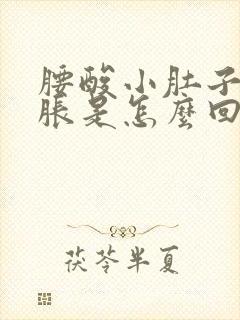 腰酸小肚子
脹是怎麼回
茯苓半夏